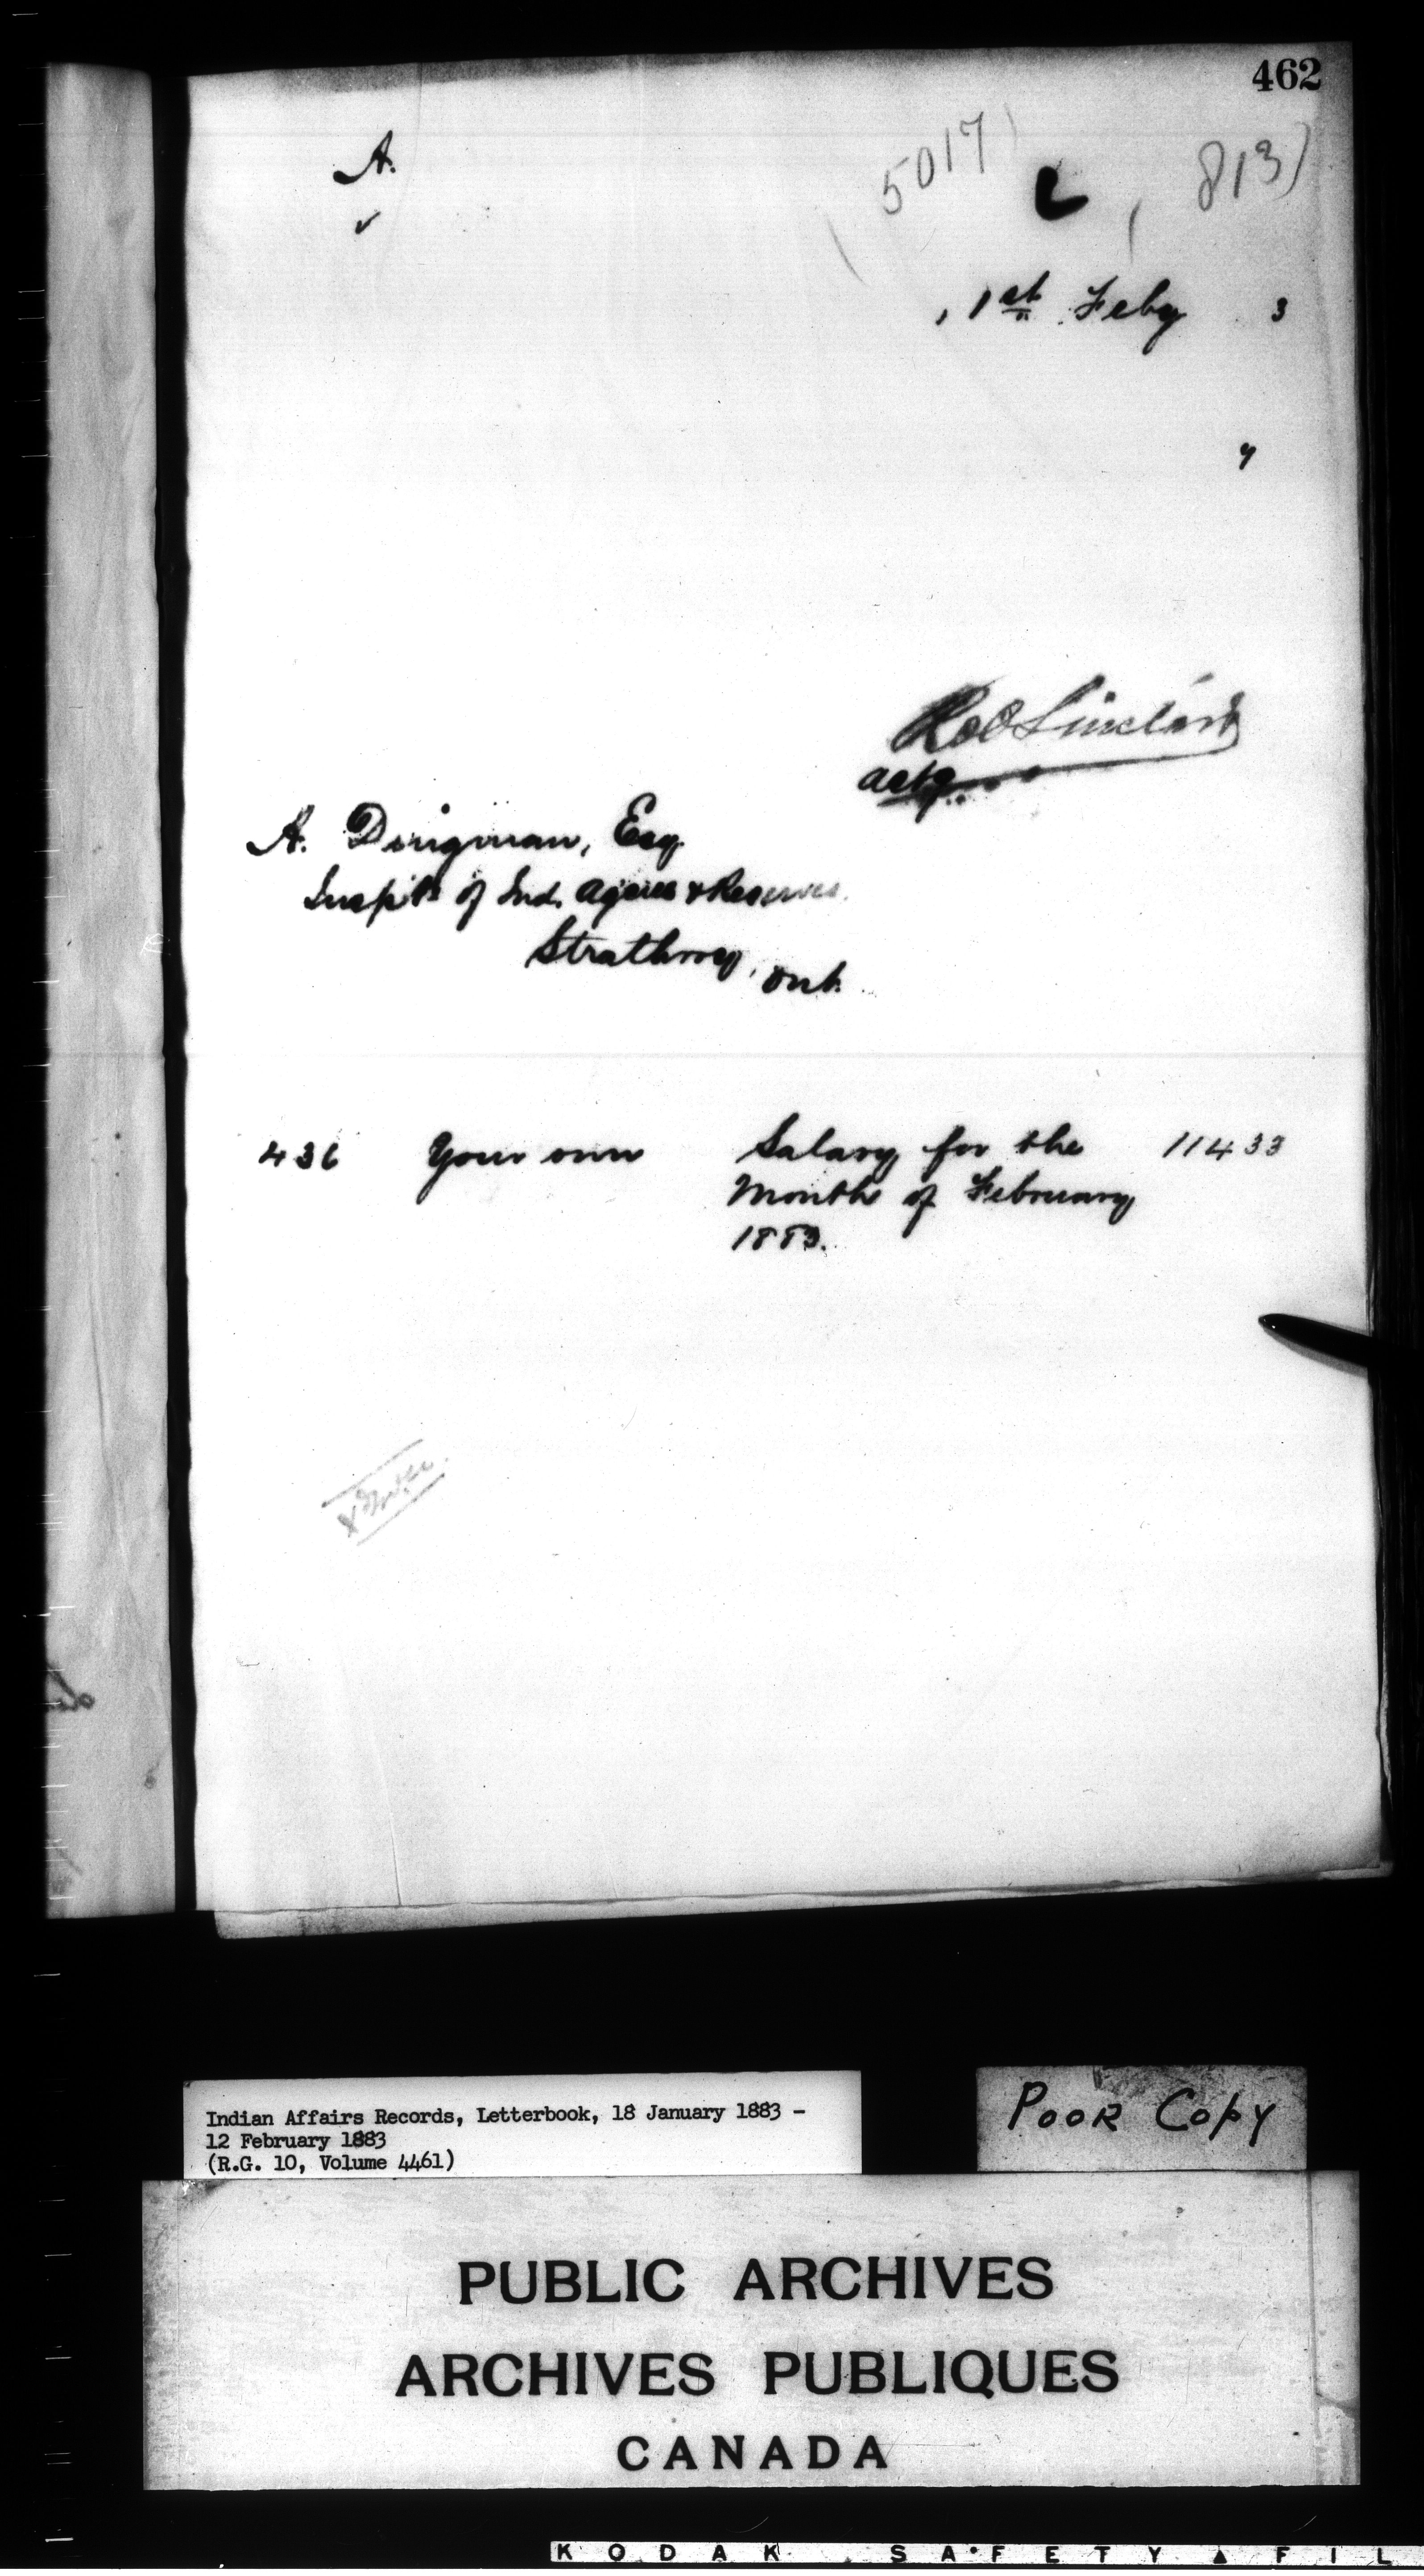 462
A.
(5017) (813)
1st Feby 3
Rob Sinclair
actg
A. Dingman, Esq.
Inspt. of Ind. Agcies & Reserves.
Strathroy, Ont.
436 Your own Salary for the 114 33
Months of February
1883.
Indian Affairs Records, Letterbook, 18 January 1883 -
12 February 1883
(R.G. 10, Volume 4461)
POOR COPY
PUBLIC ARCHIVES
ARCHIVES PUBLIQUES
CANADA
KODAK SAFETY FIL